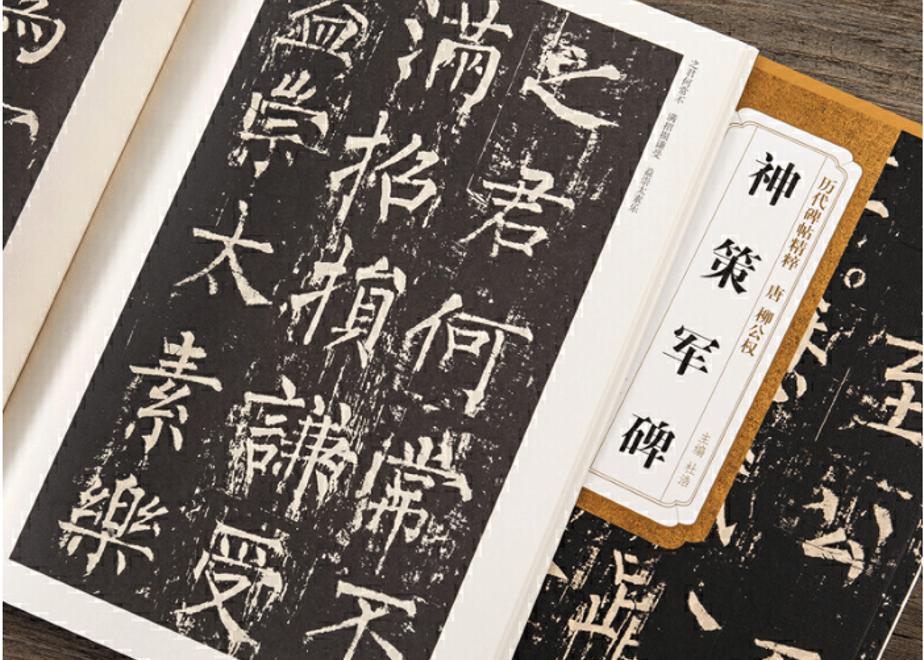 之君何常不
滿招損謙受
益崇太素樂
之君何常不 满招损谦受 益崇太素乐
历代碑帖精粹 唐 柳公权
神策军碑
主编 杜浩